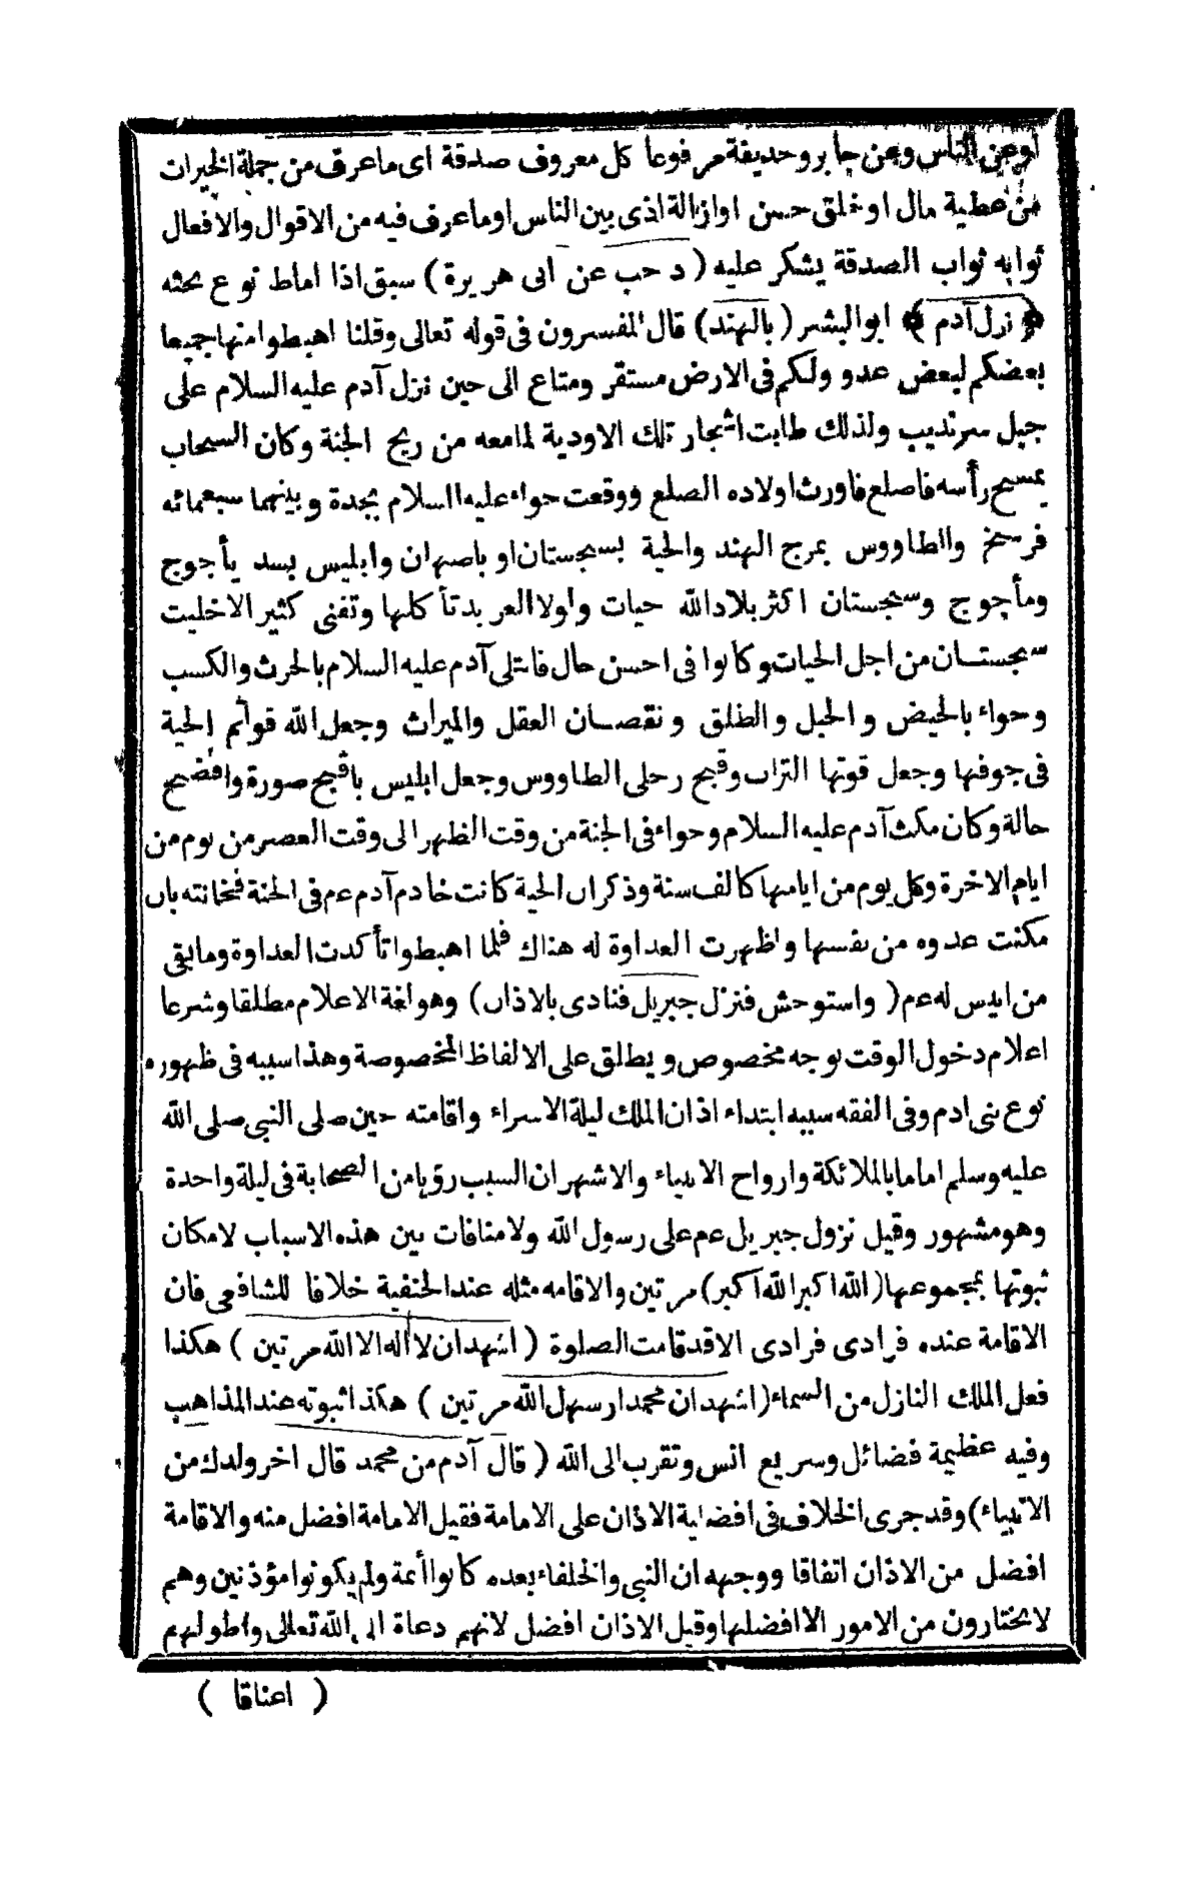 او عن الناس وعن جابر وحذيفة مرفوعا كل معروف صدقة اى ما عرف من جملة الخيرات
من عطية مال او خلق حسن او ازالة اذى بين الناس او ما عرف فيه من الاقوال والافعال
ثوابه ثواب الصدقة يشكر عليه ( د حب عن ابى هريرة ) سبق اذا اماط نوع بحثه
﴿ نزل آدم ﴾ ابو البشر ( بالهند ) قال المفسرون فى قوله تعالى وقلنا اهبطوا منها جميعا
بعضكم لبعض عدو ولكم فى الارض مستقر ومتاع الى حين نزل آدم عليه السلام على
جبل سرنديب ولذلك طابت اشجار تلك الاودية لما معه من ريح الجنة وكان السحاب
يمسح رأسه فاصلع فاورث اولاده الصلع ووقعت حواء عليه السلام بجدة وبينهما سبعمائه
فرسخ والطاووس بمرج الهند والحية بسجستان او باصبهان وابليس بسد يأجوج
ومأجوج وسجستان اكثر بلاد الله حيات ولولا العربد تأكلها وتفنى كثير الاخليت
سجستان من اجل الحيات وكانوا فى احسن حال فابتلى آدم عليه السلام بالحرث والكسب
وحواء بالحيض والحبل والطلق ونقصان العقل والميراث وجعل الله قوائم الحية
فى جوفها وجعل قوتها التراب وقبح رحلى الطاووس وجعل ابليس باقبح صورة وافضح
حالة وكان مكث آدم عليه السلام وحواء فى الجنة من وقت الظهر الى وقت العصر من يوم من
ايام الاخرة وكل يوم من ايامها كالف سنة وذكر ان الحية كانت خادم آدم عم فى الجنة فخانته بان
مكنت عدوه من نفسها واظهرت العداوة له هناك فلما اهبطوا تأكدت العداوة وما بقى
من انيس له عم ( واستوحش فنزل جبريل فنادى بالاذان ) وهو لغة الاعلام مطلقا وشرعا
اعلام دخول الوقت بوجه مخصوص ويطلق على الالفاظ المخصوصة وهذا سببه فى ظهوره
نوع بنى ادم وفى الفقه سببه ابتداء اذان الملك ليلة الاسراء واقامته حين صلى النبى صلى الله
عليه وسلم اماما بالملائكة وارواح الانبياء والاشهر ان السبب رؤيا من الصحابة فى ليلة واحدة
وهو مشهور وقيل نزول جبريل عم على رسول الله ولا منافات بين هذه الاسباب لامكان
ثبوتها بمجموعها ( الله اكبر الله اكبر ) مرتين والاقامه مثله عند الحنفية خلافا للشافعى فان
الاقامة عنده فرادى فرادى الا قد قامت الصلوة ( اشهد ان لا اله الا الله مرتين ) هكذا
فعل الملك النازل من السماء ( اشهد ان محمدا رسول الله مرتين ) هكذا ثبوته عند المذاهب
وفيه عظيمة فضائل وسريع انس وتقرب الى الله ( قال آدم من محمد قال اخر ولدك من
الانبياء ) وقد جرى الخلاف فى افضلية الاذان على الامامة فقيل الامامة افضل منه والاقامة
افضل من الاذان اتفاقا ووجهه ان النبى والخلفاء بعده كانوا أئمة ولم يكونوا مؤذنين وهم
لا يختارون من الامور الا افضلها وقيل الاذان افضل لانهم دعاة الى الله تعالى واطولهم
( اعناقا )